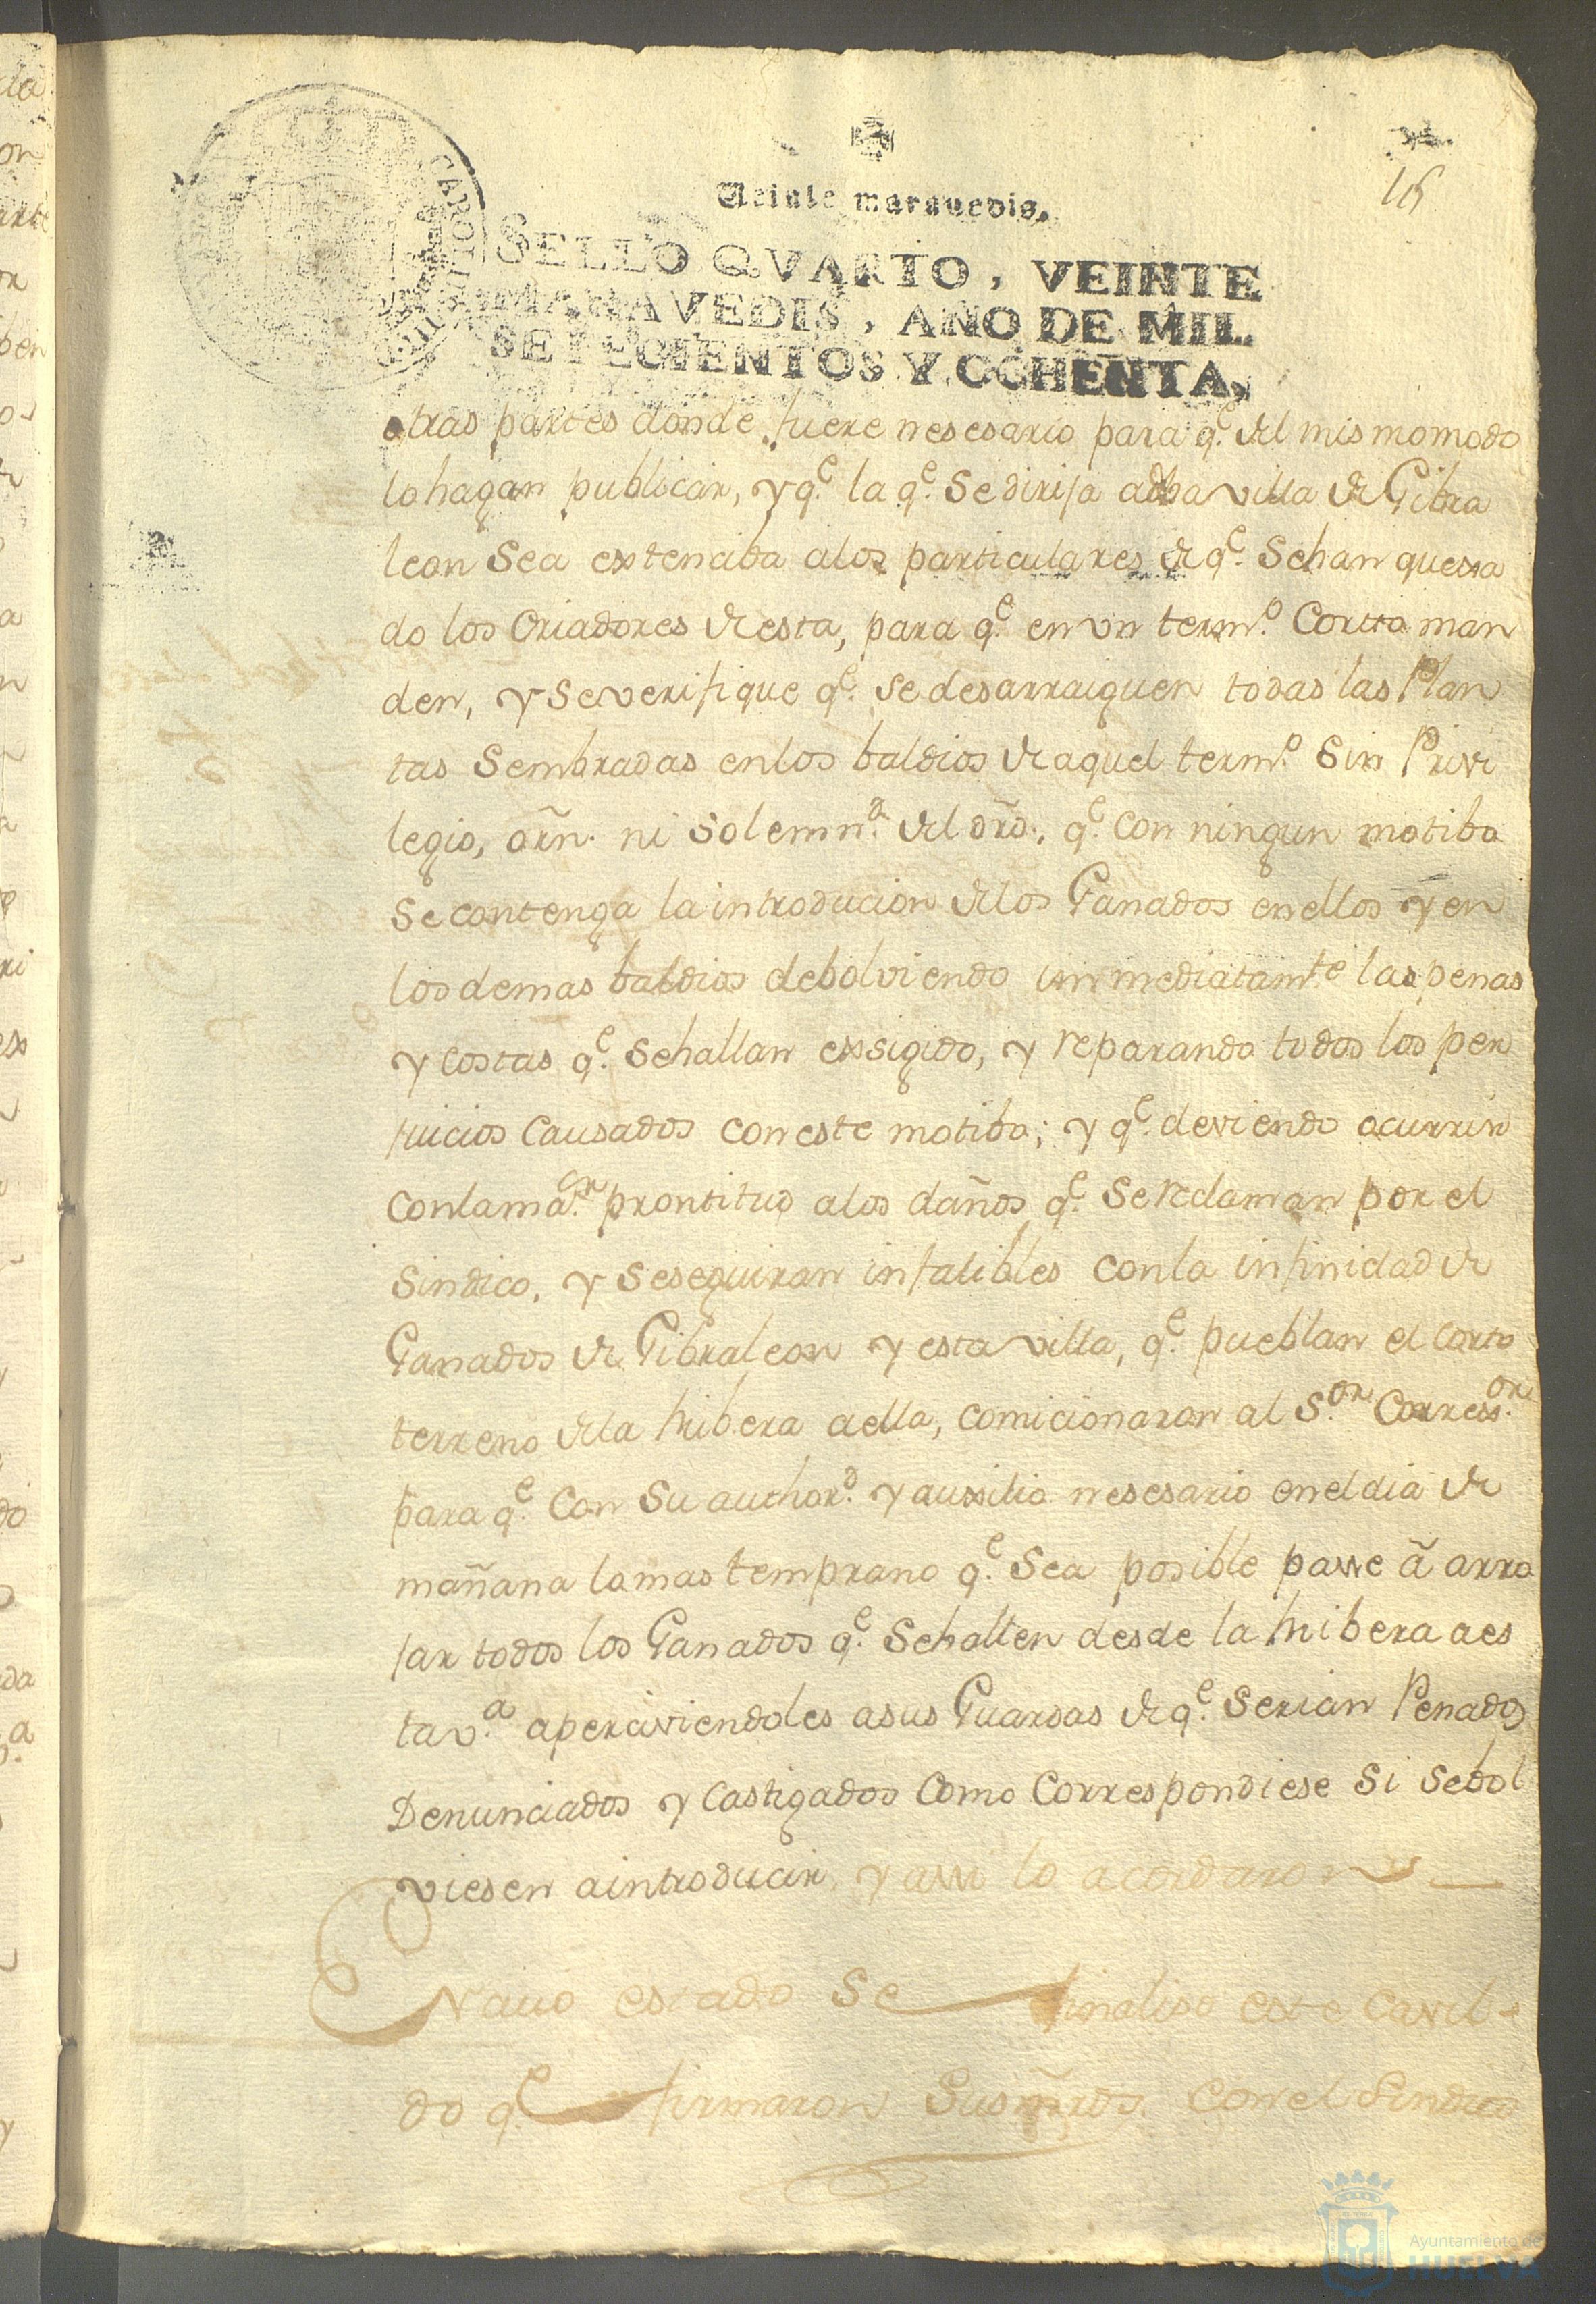 16
Veinte maravedis.
SELLO QVARTO, VEINTE
MARAVEDIS, AÑO DE MIL
SETECIENTOS Y OCHENTA,
otras partes donde fuere nesesario para q.e del mismo modo
lo hagan publicar, y q.e la q.e se dirija a dha villa de Gibra
leon sea extenciba a los particulares de q.e se han quexa
do los Criadores de esta, para q.e en un term.o Corto man
den, y se verifique q.e se desarraiguen todas las Plan
tas Sembradas en los baldios de aquel term.o sin Privi
legio, orñ. ni solemn.d del dro., q.e con ningun motibo
se contenga la introducion de los Ganados en ellos y en
los demas baldios debolviendo inmediatam.te las penas
y costas q.e se hallan exsigido, y reparando todos los per
juicios causados con este motibo; y q.e deviendo ocurrir
con la ma.or prontitud a los daños q.e se reclaman por el
Sindico, y se seguiran infalibles con la infinidad de
Ganados de Gibraleon y esta villa, q.e pueblan el corto
terreno de la Ribera a ella, comicionaron al S.or Correx.or
para q.e con su author.d y auxilio nesesario en el dia de
mañana lo mas temprano q.e sea posible passe â arro
jar todos los Ganados q.e se hallen desde la Ribera a es
ta v.a aperciviendoles a sus Guardas de q.e serian Penados
Denunciados y castigados como correspondiese si se bol
viesen a introducir, y assi lo acordaron
En cuio estado se finaliso este Cavil-
do q.e firmaron Sus mrds. con el Sindico
Ayuntamiento de
HUELVA